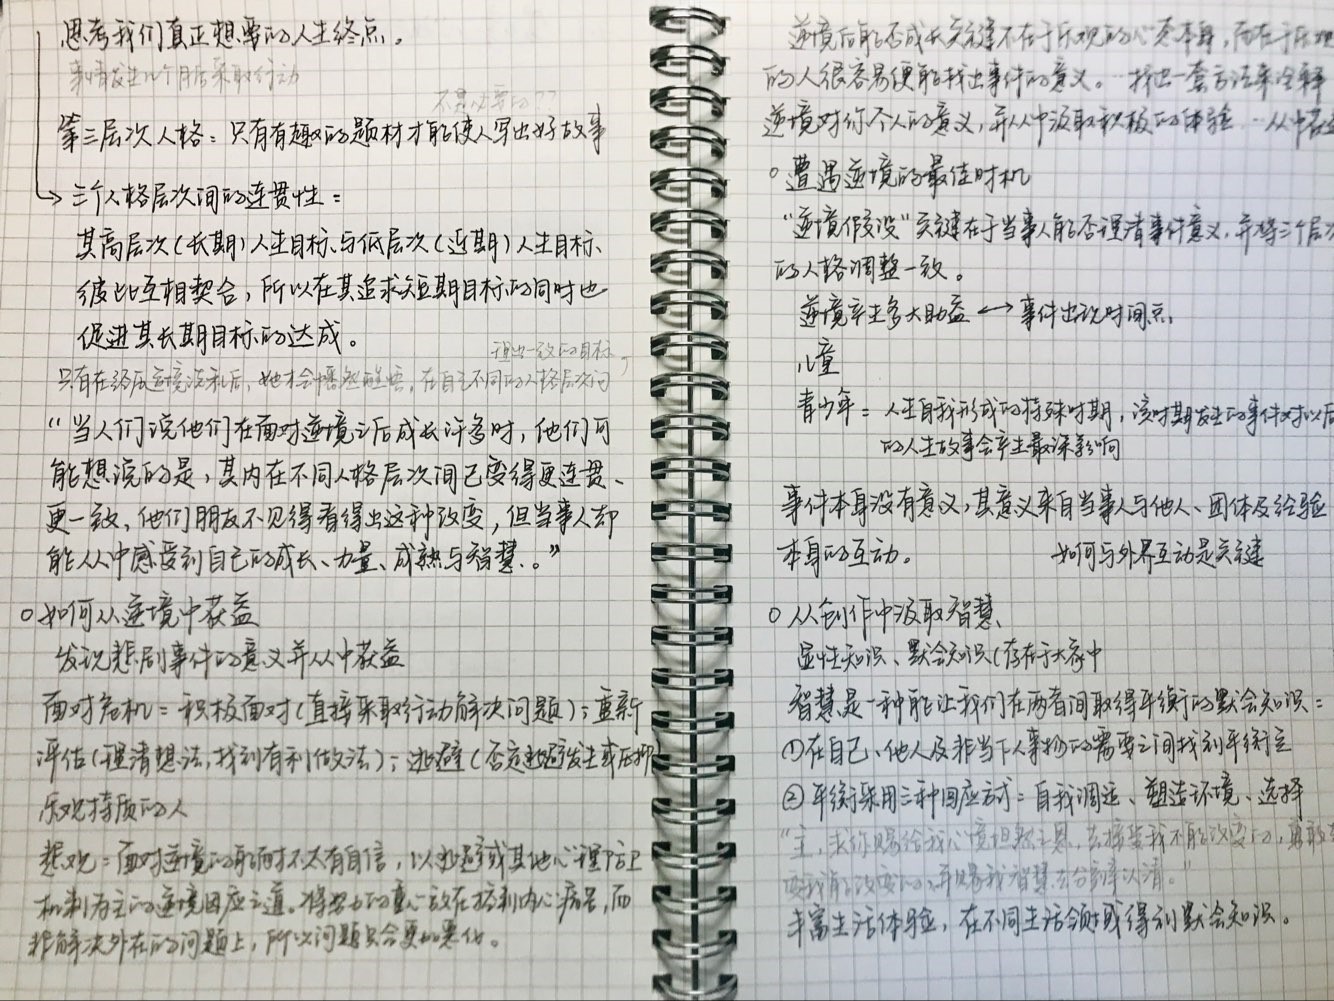 思考我们真正想要的人生终点。
事情发生几个月后采取行动
不是必要的??
第三层次人格：只有有趣的题材才能使人写出好故事
三个人格层次间的连贯性：
其高层次(长期)人生目标与低层次(近期)人生目标、
彼此互相契合，所以在其追求短期目标的同时也
促进其长期目标的达成。
理出一致的目标，
只有在经历逆境洗礼后，她才会憬然醒悟，在自己不同的人格层次间
“当人们说他们在面对逆境之后成长许多时，他们可
能想说的是，其内在不同人格层次间已变得更连贯、
更一致，他们朋友不见得看得出这种改变，但当事人却
能从中感受到自己的成长、力量、成熟与智慧。”
○如何从逆境中获益
发现悲剧事件的意义并从中获益
面对危机：积极面对(直接采取行动解决问题)；重新
评估(理清想法，找到有利做法)；逃避(否定逃避发生或压抑
乐观特质的人
悲观：面对逆境的能耐不太有自信，以逃避或其他心理防卫
机制为主的逆境因应之道。将努力的重心放在控制内心痛苦，而
非解决外在的问题上，所以问题只会更加恶化。
逆境后能否成长关键不在于乐观的心态本身，而在于乐观
的人很容易便能找出事件的意义。…找出一套方法来诠释
逆境对你个人的意义，并从中汲取积极的体验…从中获益
○遭遇逆境的最佳时机
“逆境假设”关键在于当事人能否理清事件意义，并将三个层次
的人格调整一致。
逆境产生多大助益 ←→ 事件出现时间点
儿童
青少年：人生自我形成的特殊时期，该时期发生的事件对以后
的人生故事会产生最深影响
事件本身没有意义，其意义来自当事人与他人、团体及经验
本身的互动。 如何与外界互动是关键
○从创作中汲取智慧
显性知识、默会知识(存在于大脑中
智慧是一种能让我们在两者间取得平衡的默会知识：
①在自己、他人及非当下人事物的需要之间找到平衡点
②平衡采用三种回应方式：自我调适、塑造环境、选择
“主，求你赐给我心境坦然之恩，去接受我不能改变的，勇敢去
改我能改变的，并赐我智慧去分辨认清。”
丰富生活体验，在不同生活领域或得到默会知识。